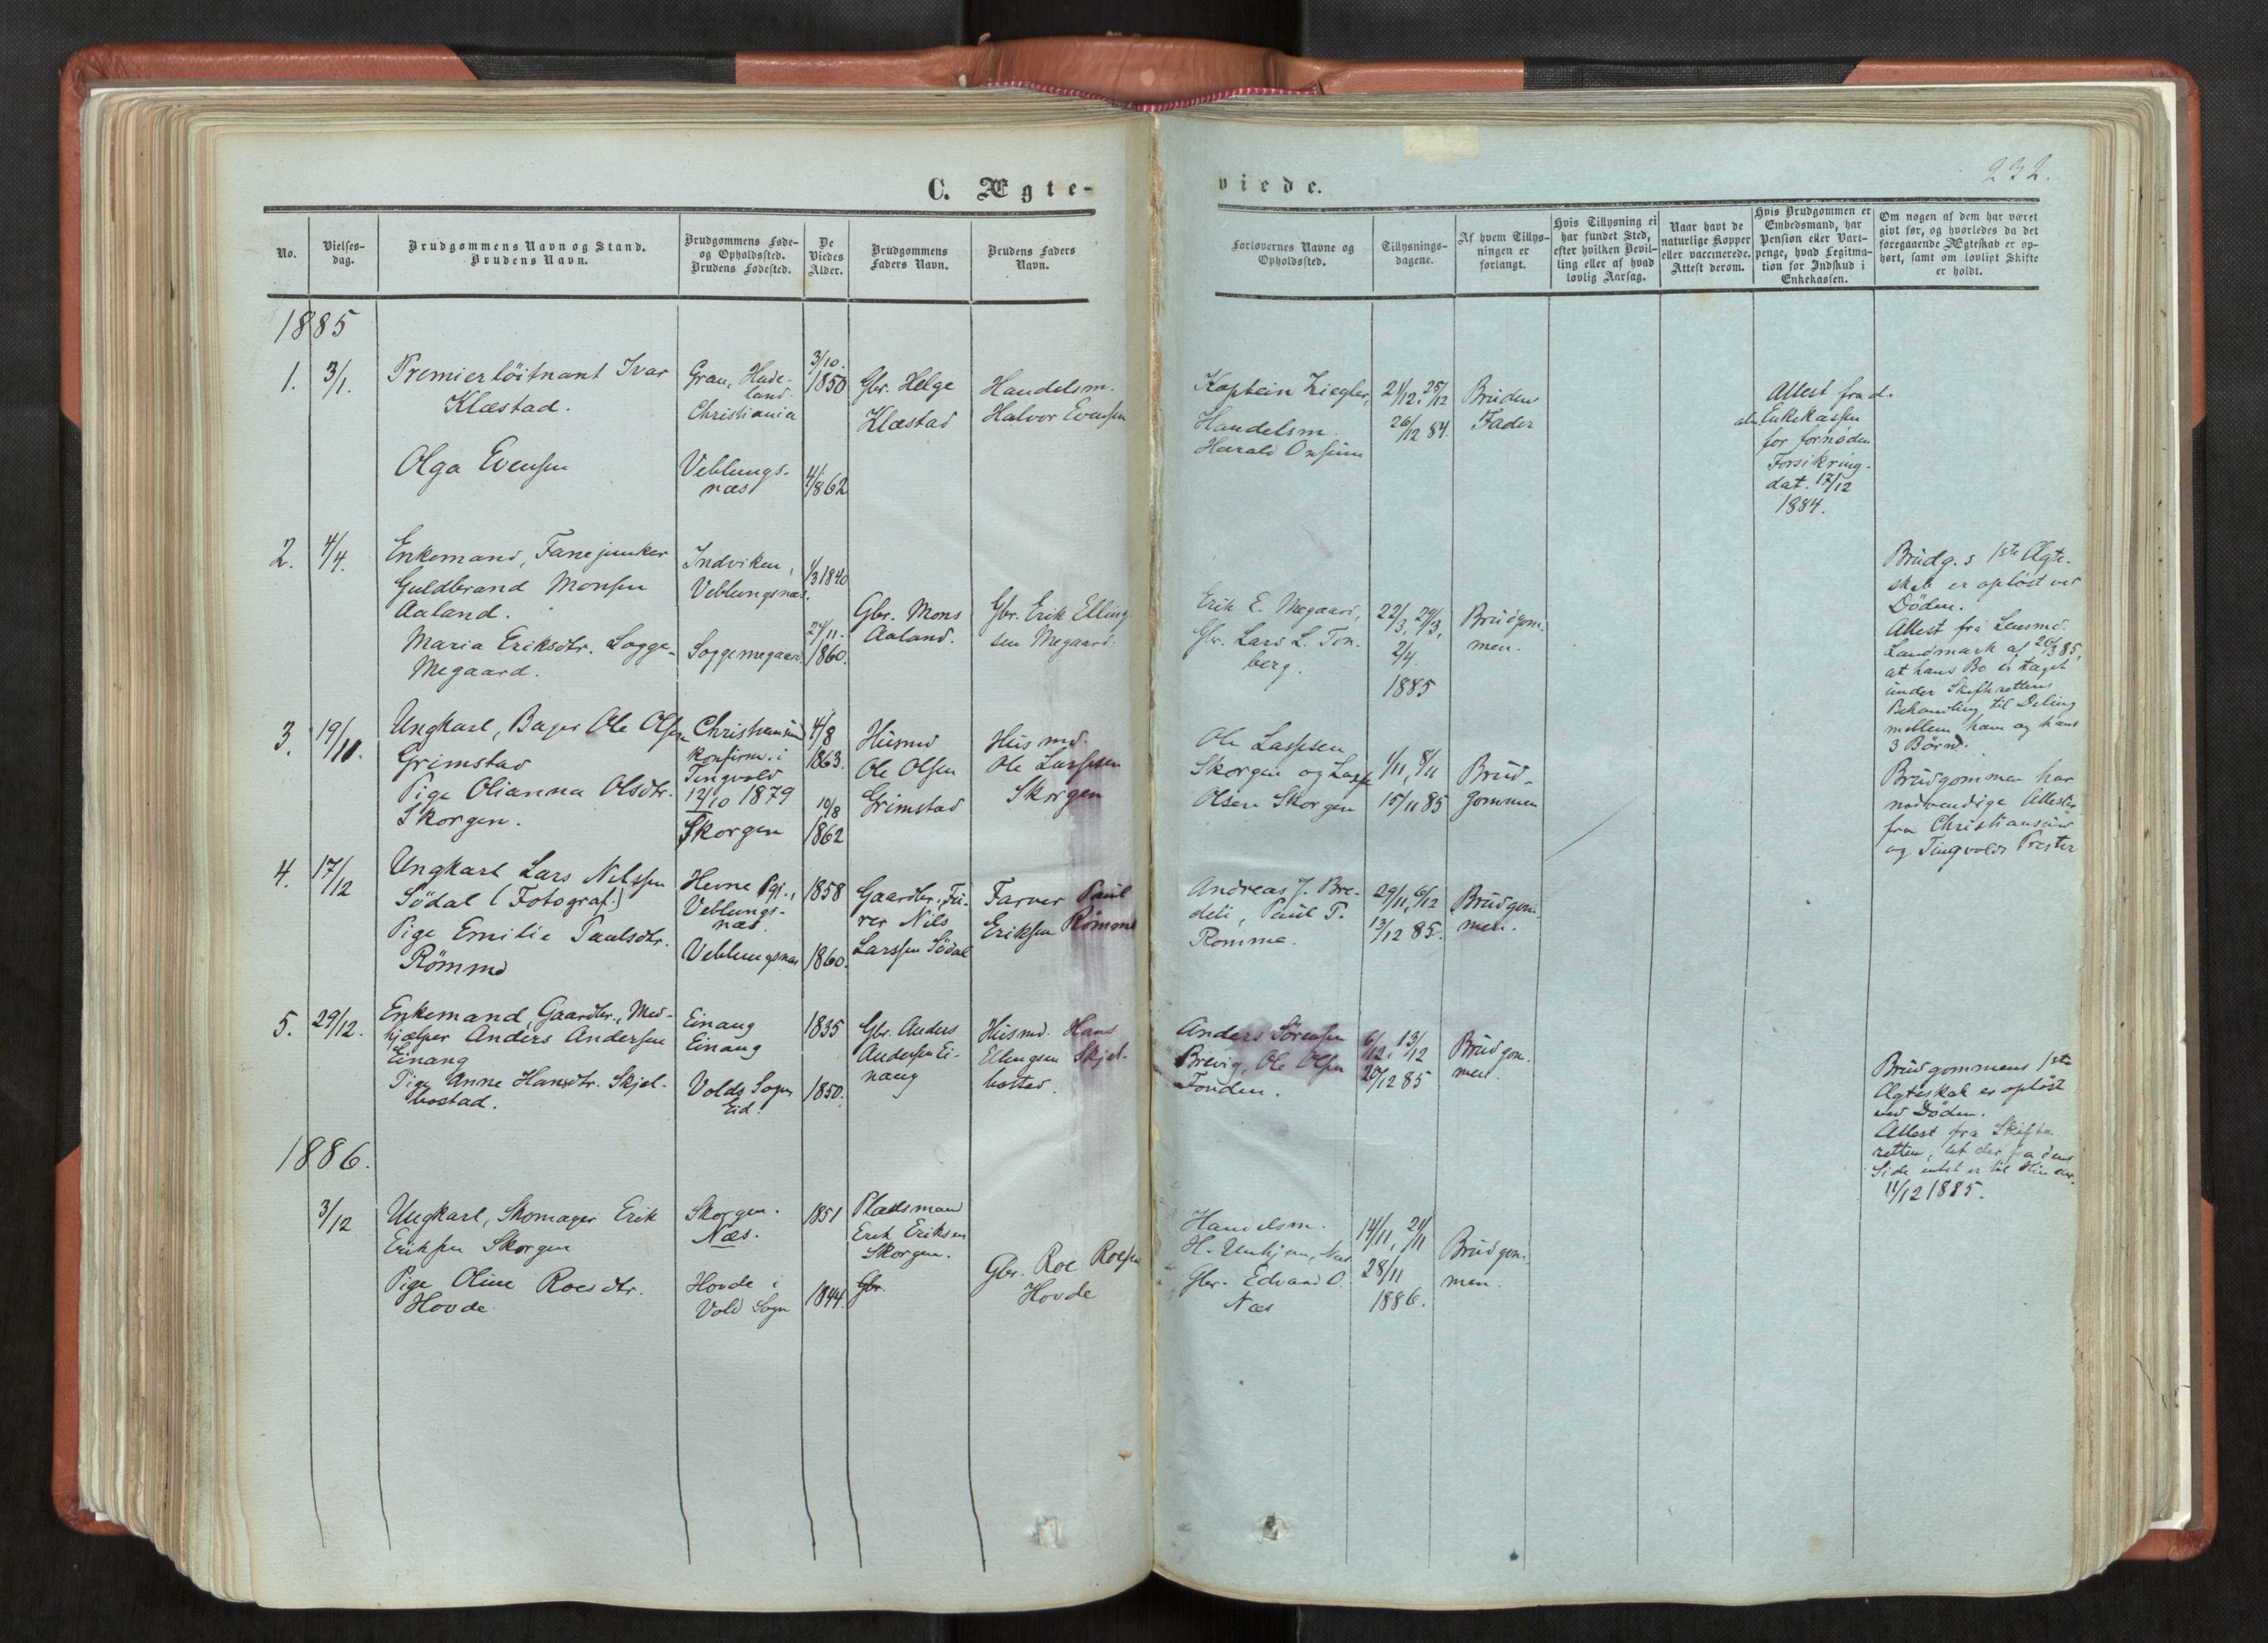 C. Ægte-
No.
Vielses-
dag.
Brudgommens Navn og Stand.
Brudens Navn.
Brudgommens Føde-
og Opholdssted.
Brudens Fødested.
De
Viedes
Alder.
Brudgommens
Faders Navn.
Brudens Faders
Navn.
1885
1.
3/1.
Premierlöitnant Ivar
Klæstad.
Olga Evensen
Gran, Hade-
land
Christiania
Veblungs-
næs
3/10.
1850
1862
Gbr. Helge
Klæstad
Handelsm.
Halvor Evensen
2.
4/4.
Enkemand, Fanejunker
Guldbrand Monsen
Aaland.
Maria Eriksdtr. Sogge-
Megaard.
Indviken,
Veblungsnæs.
Soggemegaard.
1/3 1840
24/11.
1860.
Gbr. Mons
Aaland.
Gbr. Erik Elling
sen Megaard.
3.
19/11.
Ungkarl, Bager Ole Olsen
Grimstad
Pige Olianna Olsdtr.
Skorgen.
Christiansund
konfirm. i
Tingvold
12/10 1879
Skorgen
4/8
1863.
10/8
1862
Husmd
Ole Olsen
Grimstad
Husmd.
Ole Lassesen
Skorgen
4.
17/12
Ungkarl Lars Nilssen
Södal (Fotograf.)
Pige Emilie Paulsdtr.
Römmd
Hevne Pgj.,
Veblungs-
næs.
Veblungsnæs
1858
1860.
Gaardbr., Fu-
rer Nils
Larssen Södal
Farver Paul
Eriksen Römme
5.
29/12.
Enkemand, Gaardbr., Med-
hjælper Anders Andersen
Einang
Pige Anne Hansdtr. Skjel-
bostad.
Einang
Einang
Volds Sogn
Eid.
1835
1850.
Gbr. Anders
Andersen Ei-
nang
Husmd. Hans
Elingsen Skjel-
bostad.
1886.
3/12
Ungkarl, Skomager Erik
Eriksen Skorgen
Pige Oline Roesdtr.
Hovde
Skorgen.
Næs.
Hovde i
Vold Sogn
1851
1844.
Pladsmand
Erik Eriksen
Skorgen.
Gbr.
Gbr. Roe Roesen
Hovde
232.
viede.
Forlovernes Navne og
Opholdssted.
Tillysnings-
dagene.
Af hvem Tillys-
ningen er
forlangt.
Hvis Tillysning ei
har fundet Sted,
efter hvilken Bevil-
ling eller af hvad
lovlig Aarsag.
Naar havt de
naturlige Kopper
eller vaccinerede.
Attest derom.
Hvis Brudgommen er
Embedsmand, har
Pension eller Vart-
penge, hvad Legitma-
tion for Indskud i
Enkekassen.
Om nogen af dem har været
givt før, og hvorledes da det
foregaaende Ægteskab er op-
hørt, samt om lovligt Skifte
er holdt.
Kaptein Ziegler,
Handelsm.
Harald Onsum
21/12, 25/12
26/12 84.
Brudens
Fader
Attest fra d.
alm. Enkekassen
for fornøden
Forsikring.
dat. 17/12
1884.
Erik E. Megaard,
Gbr. Lars L. Ton-
berg.
22/3, 29/3,
2/4.
1885
Brudgom-
men.
Brudg.s 1ste Ægte-
skab er opløst ved
Döden.
Attest fra Lensmd.
Landmark af 20/3 85,
at hans Bo er taget
under Skifterettens
Behandling til Deling
mellem ham og hans
3 Børn.
Ole Lassesen
Skorgen og Lasse
Olsen Skorgen
1/11, 8/11
15/11 85
Brud-
gommen
Brudgommen har
nødvendige Attester
fra Christiansund
og Tingvolds Prester
Andreas J. Bre-
deli, Paul P.
Romme.
29/11, 6/12
13/12 85.
Brudgom-
men.
Anders Sörensen
Brevig, Ole Olsen
Fonden.
6/12, 13/12
20/12 85
Brudgom-
men.
Brudgommens 1ste
Ægteskab er opløst
ved Döden.
Attest fra Skifte-
retten, at der fra dens
Side intet er til Hinder.
11/12 1885.
Handelsm.
H. Unhjem, Næs
Gbr. Edvard O.
Næs
14/11, 21/11
28/11
1886.
Brudgom-
men.